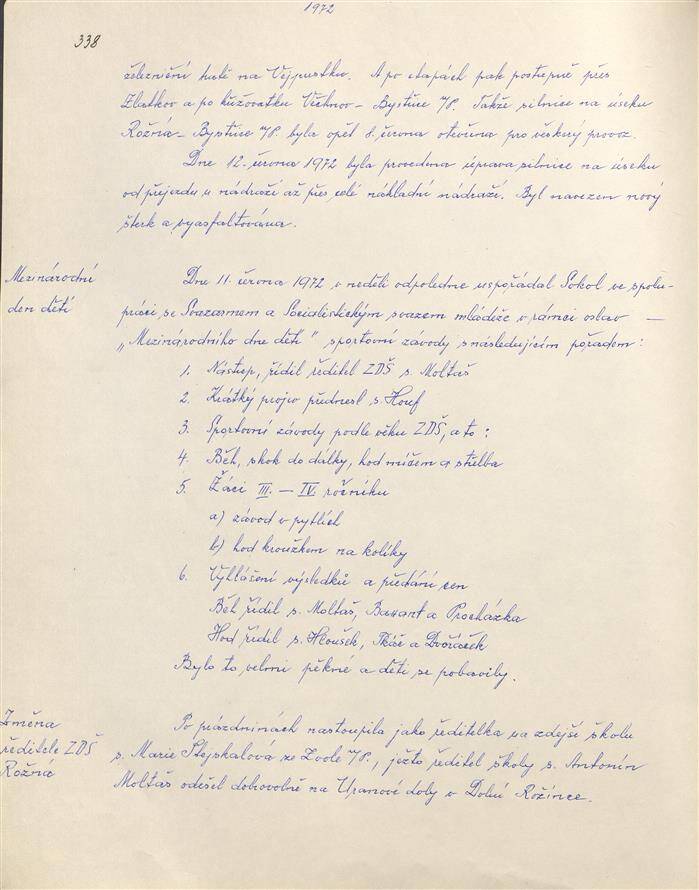 1972
338
železniční tratě na Vejpustku. A po etapách pak postupně přes
Zlatkov a po křižovatku Věchnov - Bystřice n/P. Takže silnice na úseku
Rožná - Bystřice n/P. byla opět 8. června otevřena pro veškerý provoz.
Dne 12. června 1972 byla provedena úprava silnice na úseku
od přejezdu u nádraží až přes celé nákladní nádraží. Byl navezen nový
štěrk a vyasfaltována.
Mezinárodní
den dětí
Dne 11. června 1972 v neděli odpoledne uspořádal Sokol ve spolu-
práci se Svazarmem a Socialistickým svazem mládeže v rámci oslav —
„Mezinárodního dne dětí" sportovní závody s následujícím pořadem:
1. Nástup, řídil ředitel ZDŠ s. Moltaš
2. Krátký projev přednesl s. Houf
3. Sportovní závody podle věku ZDŠ, a to:
4. Běh, skok do dálky, hod míčem a střelba
5. Žáci III. — IV. ročníku
a) závod v pytlích
b) hod kroužkem na kolíky
6. Vyhlášení výsledků a předání cen
Běh řídil s. Moltaš, Bassant a Procházka
Hod řídil s. Hloušek, Tkáč a Dvořáček
Bylo to velmi pěkné a děti se pobavily.
Změna
ředitele ZDŠ
Rožná
Po prázdninách nastoupila jako ředitelka na zdejší školu
s. Marie Stejskalová ze Zvole n/P., ježto ředitel školy s. Antonín
Moltaš odešel dobrovolně na Uranové doly v Dolní Rožínce.